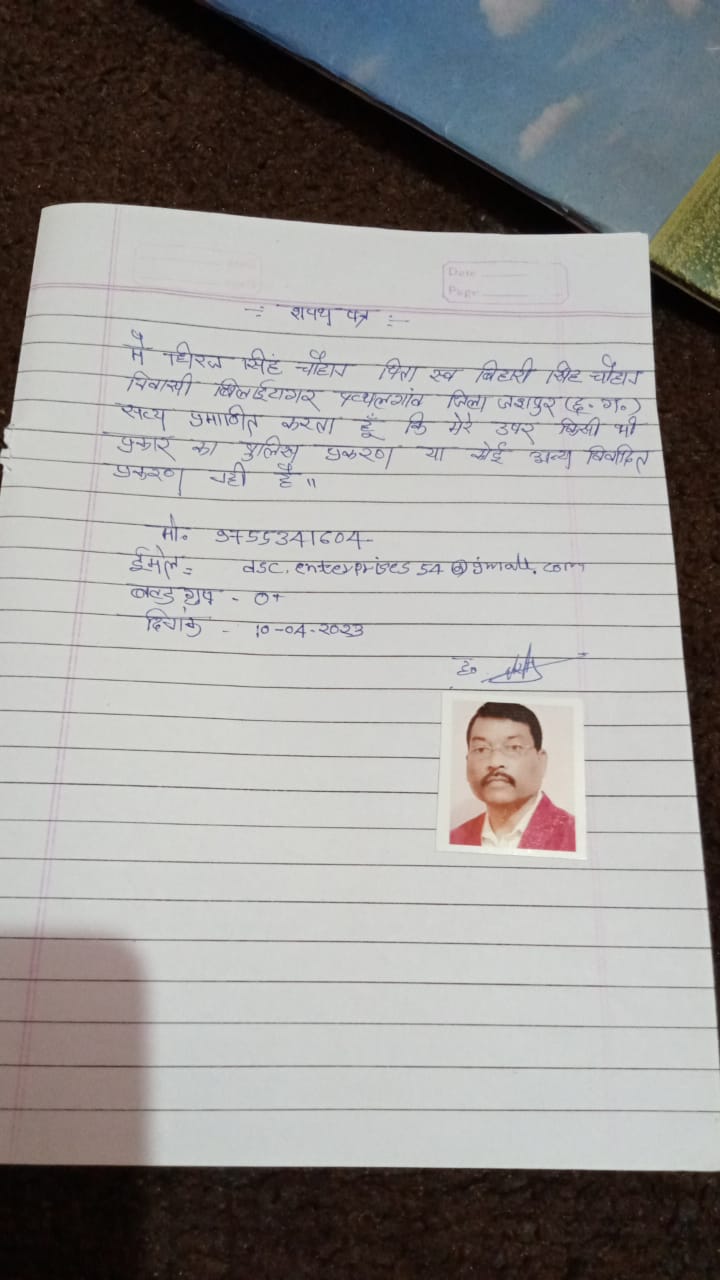 Date
Page
-: शपथ पत्र :-
मैं धीरज सिंह चौहान पिता स्व बिहारी सिंह चौहान
निवासी बिलाईटागर पत्थलगांव जिला जशपुर (छ.ग.)
सत्य प्रमाणित करता हूँ कि मेरे उपर किसी भी
प्रकार का पुलिस प्रकरण या कोई अन्य विवादित
प्रकरण नही है॥
मो. 9755341604-
ईमेल = dsc.enterprises54@gmail.com
ब्लड ग्रुप - O+
दिनांक - 10-04-2023
ह.